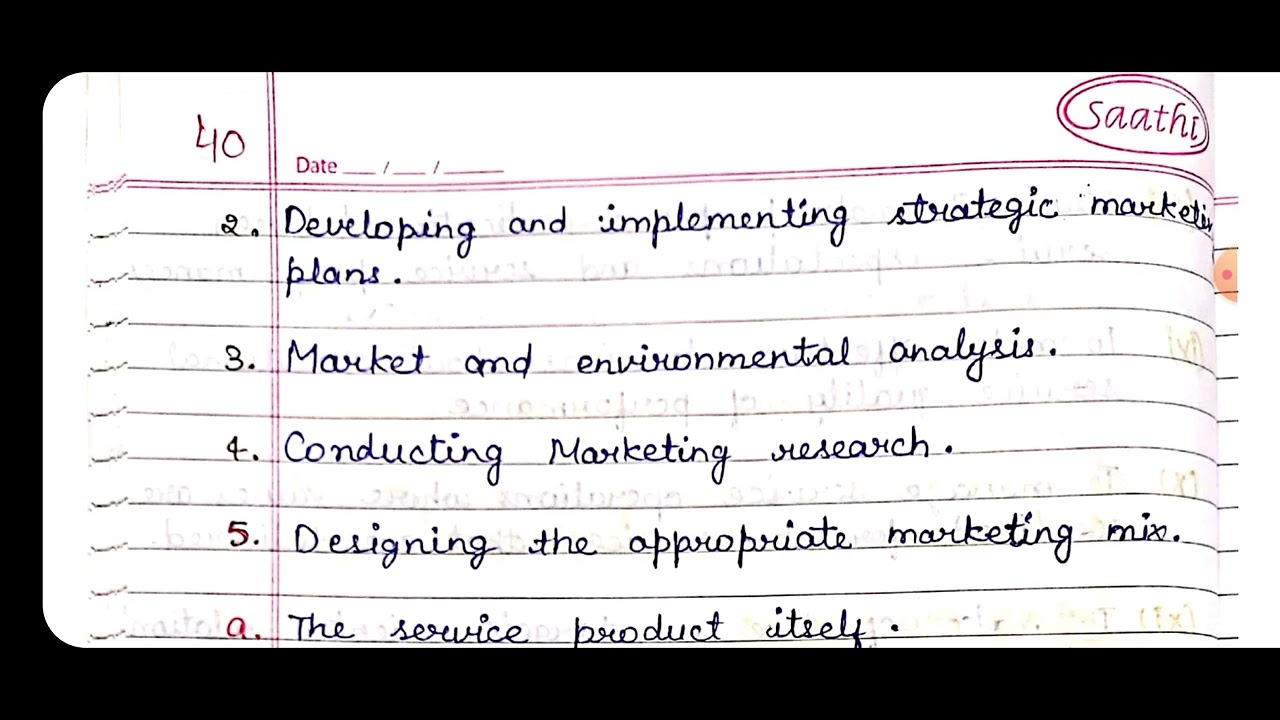 40
Saathi
Date __ / __ / ____
2. Developing and implementing strategic
plans.
3. Market and environmental analysis.
4. Conducting Marketing research.
5. Designing the appropriate marketing mix.
a. The service product itself.